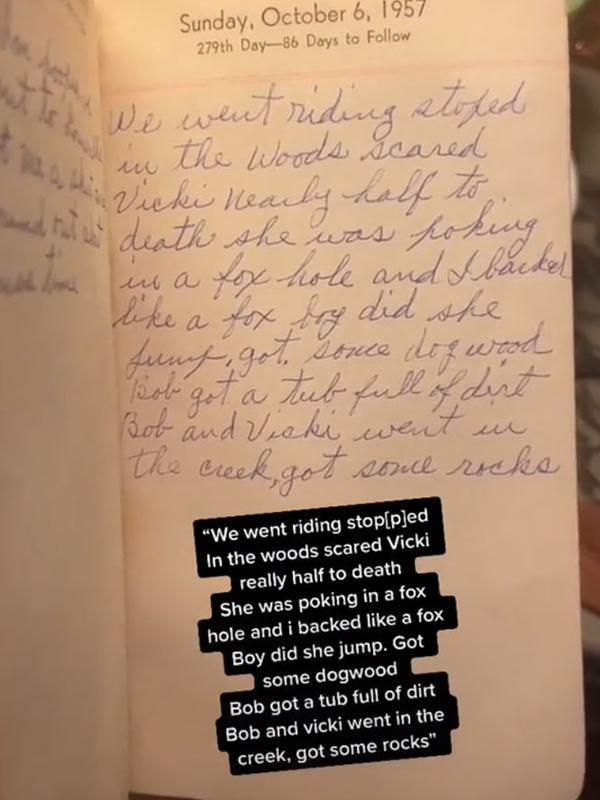 Sunday, October 6, 1957
279th Day—86 Days to Follow
We went riding stoped
in the Woods scared
Vicki nearly half to
death she was poking
in a fox hole and I barked
like a fox boy did she
jump, got some dog wood
Bob got a tub full of dirt
Bob and Vicki went in
the creek, got some rocks
time
“We went riding stop[p]ed
In the woods scared Vicki
really half to death
She was poking in a fox
hole and i backed like a fox
Boy did she jump. Got
some dogwood
Bob got a tub full of dirt
Bob and vicki went in the
creek, got some rocks”